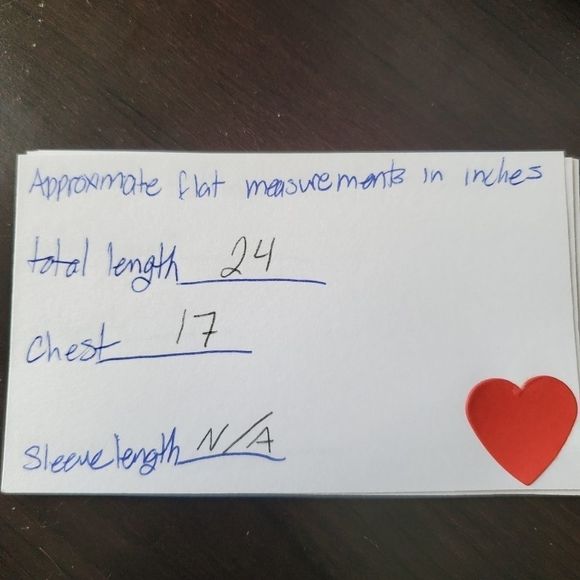 Approximate flat measurements in inches
total length 24
Chest 17
Sleeve length N/A